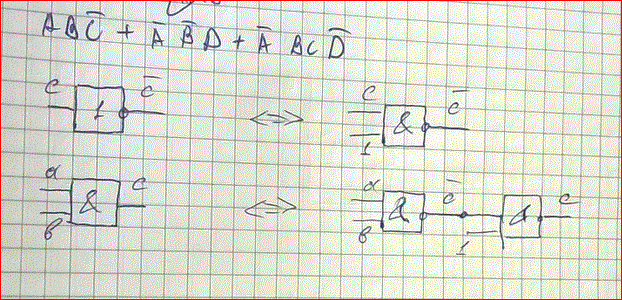 A B C̅ + A̅ B̅ D + A̅ B C D̅
c 1 c̅ ⇔ c 1 & c̅
a в & c ⇔ a в & c̅ 1 & c